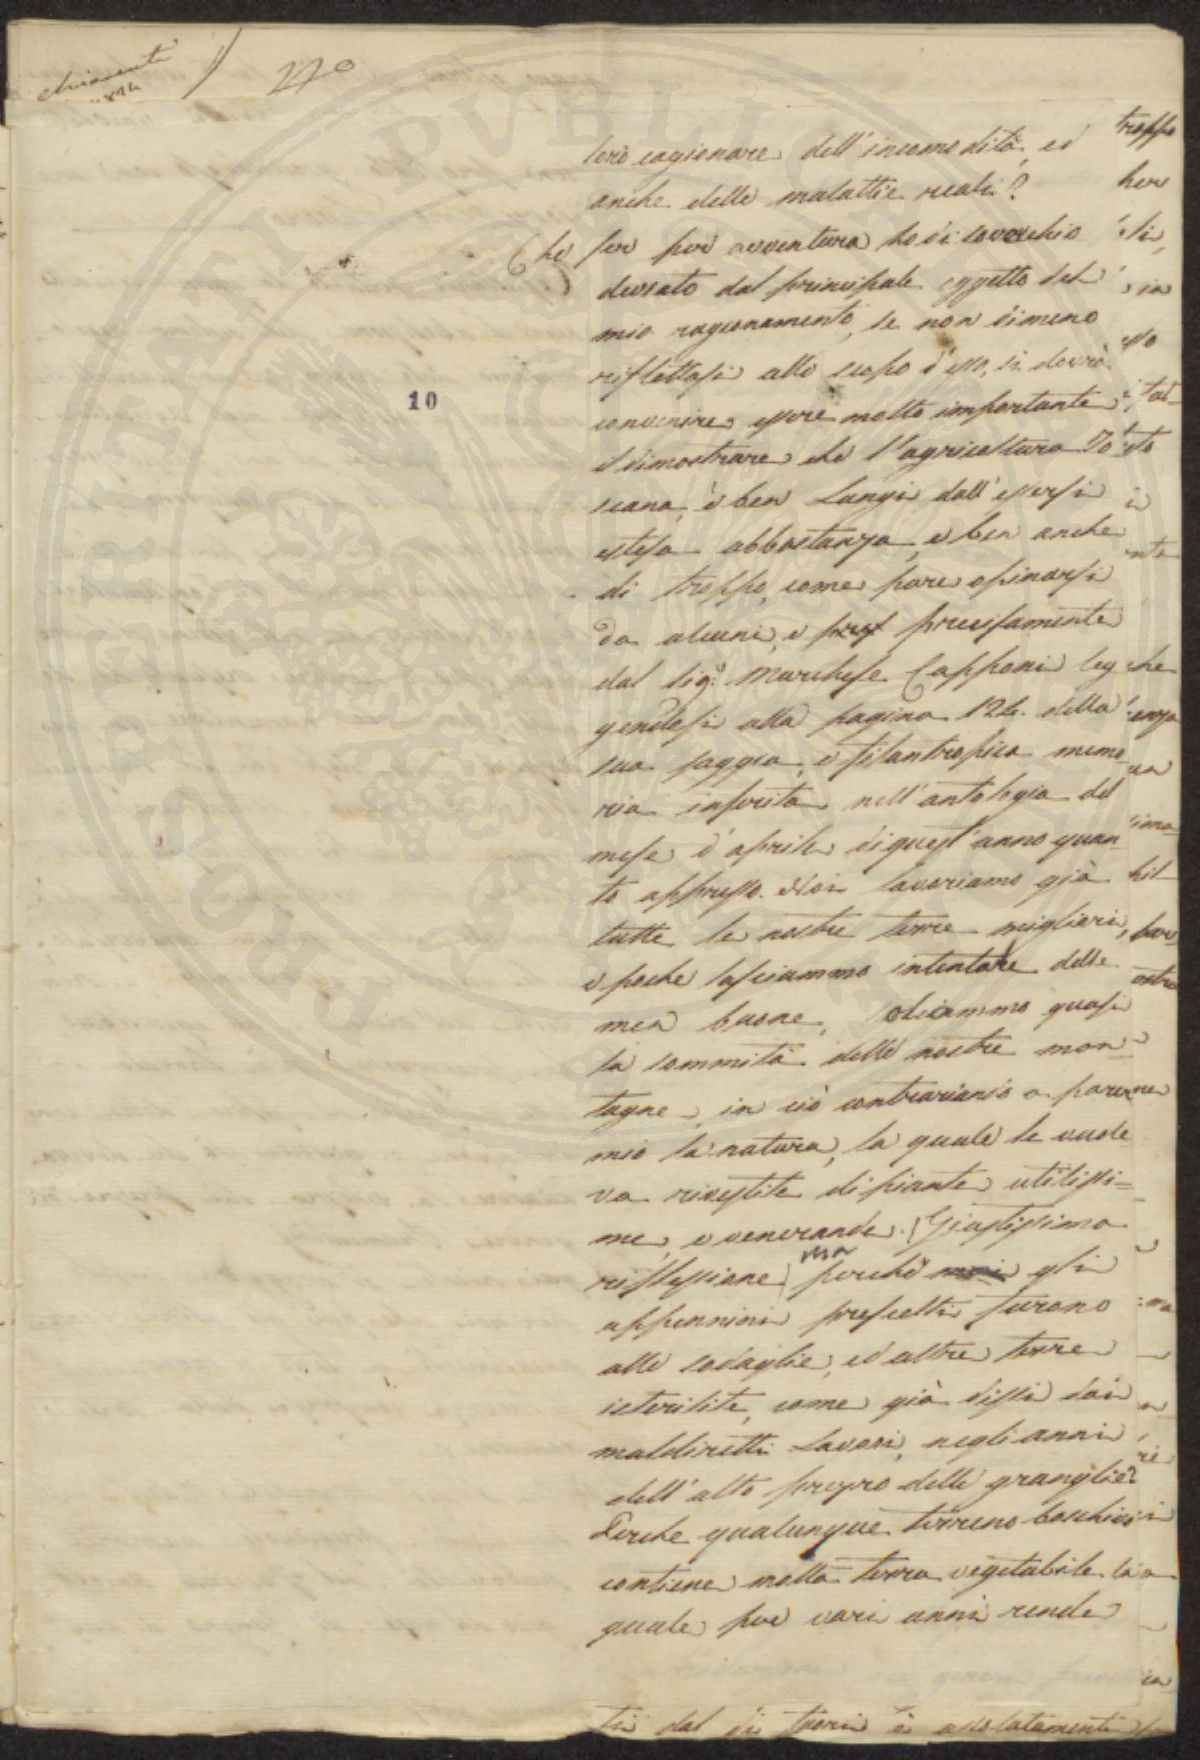 270
lero cagionare dell'incomodità, ed
anche delle malattie reali?
Che se per avventura ho di soverchio
deviato dal principale oggetto del
mio ragionamento, se non dimeno
riflettasi allo scopo d'esso, si dovrà
convenire essere molto importante
il dimostrare che l'agricoltura To
scana, è ben lungi dall'essersi
estesa abbastanza, e ben anche
di troppo, come pare opinarsi
da alcuni, e precisamente
dal Sig.r Marchese Capponi leg
gendosi alla pagina 124. della
sua saggia, e filantropica memo
ria inserita nell'antologia del
mese d'aprile di quest'anno quan
to appresso. Noi lavoriamo già
tutte le nostre terre migliori,
e poche lasciammo intentate delle
men buone, soliammo quasi
la sommità delle nostre mon
tagne, in ciò contrariando a parer
mio la natura, la quale le vuole
va rivestite di piante utilissi=
me, e venerande. (Giustissima
riflessione) ma perchè gli
appennini prescelti furono
alle sodaglie, ed altre terre
isterilite, come già dissi dai
maldiretti lavori, negli anni
dell'alto prezzo delle granaglie?
Perche qualunque terreno boschivo
contiene molta terra vegetabile la
quale per vari anni rende
10
troppo
che
tii dal di fuori è assolutamente